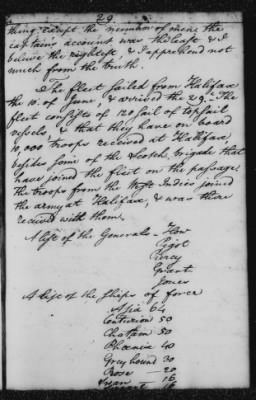 29.
thing except the number of men the
captains account was the least & I
beleive the rightest, & I apprehend not
much from the truth.
The fleet sailed from Halifax
the 10. of June, & arrived the 29. The
fleet consists of 120 sail of topsail
vessels, & that they have on board
10,000 troops received at Hallifax,
besides some of the Scotch brigade that
have joined the fleet on the passage.
the troops from the West Indies joined
the army at Halifax, & was there
received with them.
A list of the Generals - How
Pigot
Percy
Grant
Jones
A list of the Ships of force
Asia 64
Centurion 50
Chatam 50
Phoenix 40
Greyhound 30
Rose — 20
Swan — 16